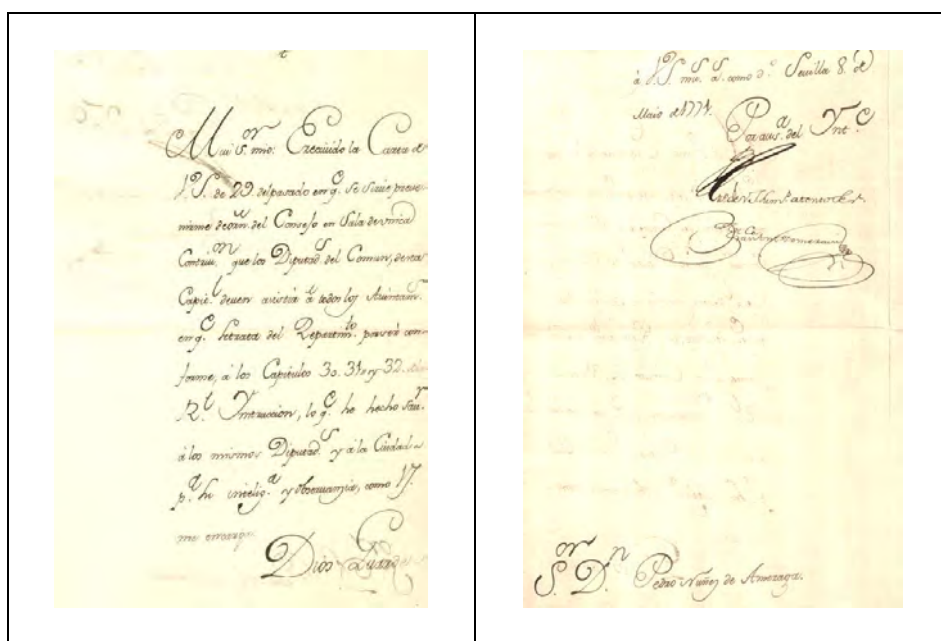 Mui S.or mio: He recivido la Carta de
V.S. de 29 del pasado en q.e se sirve preve-
nirme de orn. del Consejo en Sala de vnica
Contriu.on que los Diputad.s del Comun, de esta
Capit.l deven asistir a todos los Aiuntam.s
en q.e se trata del Repartim.to
forme, a los Capitulos 30. 31. y 32.
R.l Yntruccion, lo q.e he hecho sau.r
â los mismos Diputad.s y â la Ciudad
p.a su intelig.a y observanzia, como V.S.
me encarga.
Dios Guarde
â V.S. m.s a.s como d.o Sevilla 8. de
Maio de 1771.
Por aus.a del Ynt.e
S.or D.n Pedro Nuñez de Amezaga.